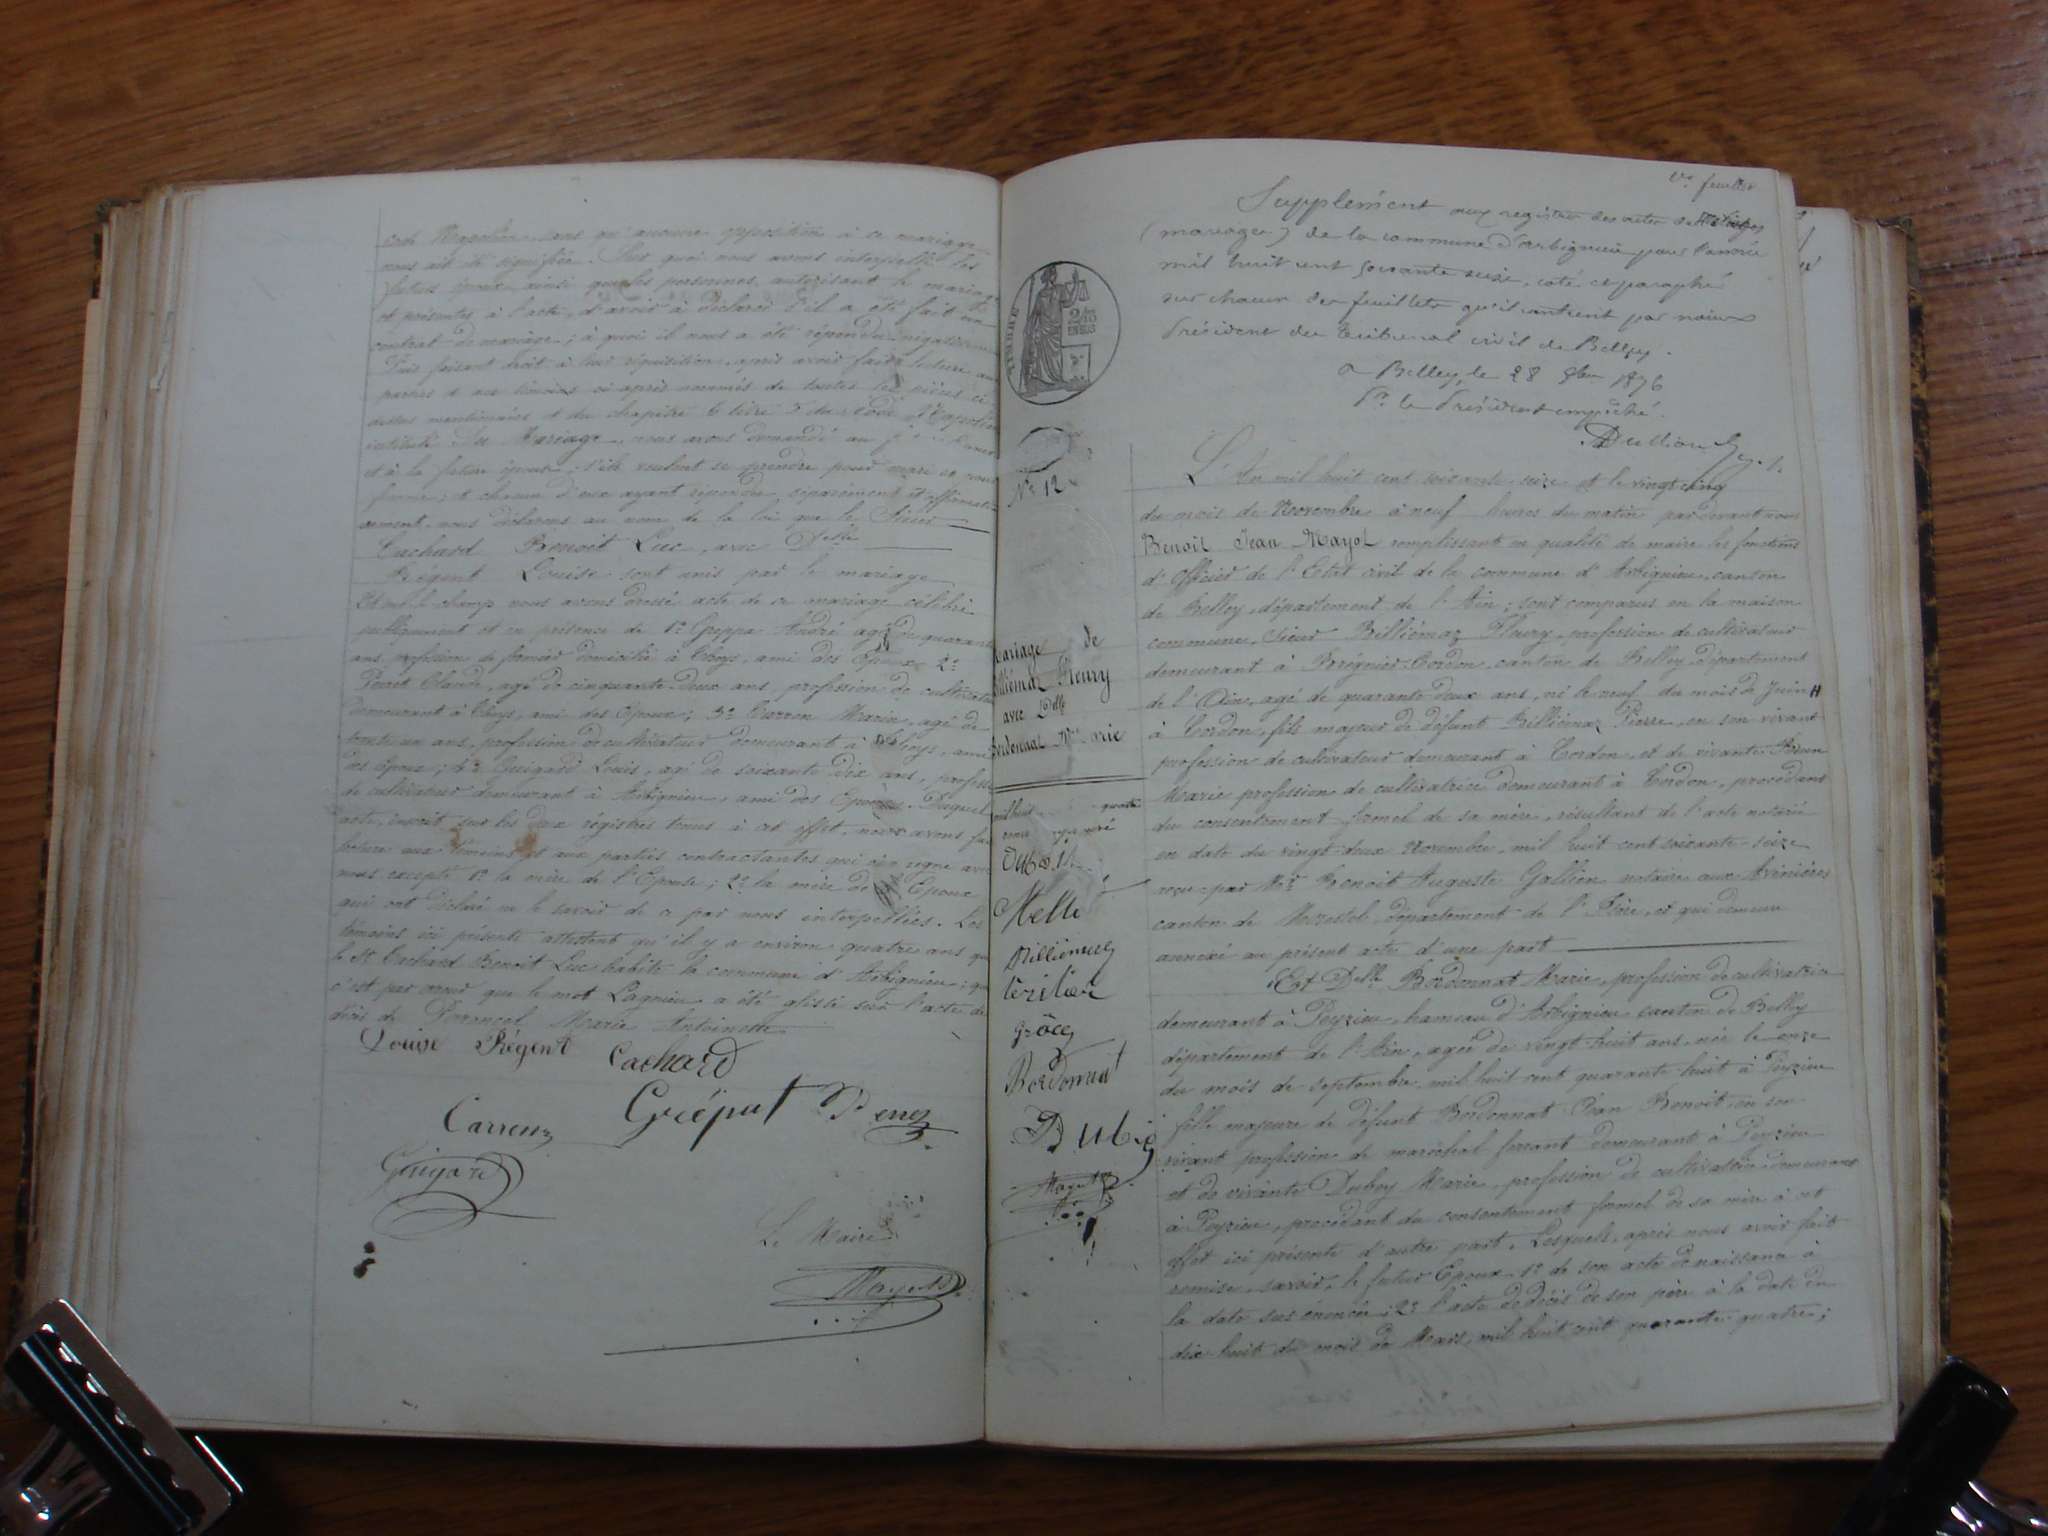 code Napoléon, sans qu'aucune opposition à ce mariage
nous ait été signifiée. Sur quoi nous avons interpellé les
futurs époux, ainsi que les personnes autorisant le mariage
et présentes à l'acte, d'avoir à déclarer s'il a été fait un
contrat de mariage; à quoi il nous a été répondu négativement
Puis faisant droit à leur réquisition, après avoir fait lecture aux
parties et aux témoins ci après nommés de toutes les pièces ci
dessus mentionnées et du chapitre 6 titre 5 du Code Napoléon
intitulé Du Mariage, nous avons demandé au futur Epoux
et à la future épouse, s'ils veulent se prendre pour mari et pour
femme; et chacun d'eux ayant répondu séparément et affirmati
vement, nous déclarons au nom de la loi que le Sieur
Cachard Benoit Luc, avec Delle
Régent Louise sont unis par le mariage
Et sur le champ nous avons dressé acte de ce mariage célébré
publiquement et en présence de 1º Greppa André agé de quarante
ans, profession de fermier domicilié à Cleys, ami des Epoux 2º
Perret Claude, agé de cinquante deux ans, profession de cultivateur
demeurant à Cleys, ami des Epoux; 3º Carron Marin, agé de
trente un ans, profession de cultivateur demeurant à Cleys, ami
des Epoux; 4º Guigard Louis, agé de soixante dix ans, profession
de cultivateur demeurant à Arbignieu, ami des Epoux. Duquel
acte, inscrit sur les deux régistres tenus à cet effet, nous avons fait
lecture aux témoins et aux parties contractantes qui ont signé avec
nous excepté 1º la mère de l'Epouse; 2º la mère de l'Epoux
qui ont déclaré ne le savoir de ce par nous interpellées. Les
témoins ici présents attestent qu'il y a environ quatre ans que
le Sr Cachard Benoit Luc habite la commune d'Arbignieu; que
c'est par erreur que le mot Lagnieu a été glissé sur l'acte de
décès de Marie Antoinette
Louise Régent Cachard
Carron Perret
Guigard
Le Maire
Mayot
1er feuillet
Supplément aux registres des actes de
(mariages) de la commune d'arbignieu pour l'année
mil huit cent soixante seize, coté et paraphé
sur chacun des feuillets qu'il contient par nous
Président du Tribunal civil de Belley.
à Belley, le 28 9bre 1876
Pr le Président empêché.
TIMBRE
Nº 12
Mariage de
Billiémaz Fleury
avec Delle
Bordonnat Marie
L'An mil huit cent soixante seize et le vingt cinq
du mois de Novembre à neuf heures du matin pardevant nous
Benoit Jean Mayot remplissant en qualité de maire les fonctions
d'Officier de l'Etat civil de la commune d'Arbignieu, canton
de Belley, département de l'Ain; sont comparus en la maison
commune, Sieur Billiémaz Fleury, profession de cultivateur
demeurant à Brégnier-Cordon, canton de Belley, département
de l'Ain, agé de quarante deux ans, né le neuf du mois de Juin
à Cordon, fils majeur de défunt Billiémaz Pierre, en son vivant
profession de cultivateur demeurant à Cordon, et de vivante Brun
Marie profession de cultivatrice demeurant à Cordon, procédant
du consentement formel de sa mère, résultant de l'acte notarié
en date du vingt deux Novembre, mil huit cent soixante-seize
reçu par Mre Benoit Auguste Gallien notaire aux Avenières
canton de Morestel, département de l'Isère, et qui demeure
annexé au présent acte d'une part
Et Delle Bordonnat Marie, profession de cultivatrice
demeurant à Peyzieu, hameau d'Arbignieu canton de Belley
département de l'Ain, agée de vingt huit ans, née le onze
du mois de septembre mil huit cent quarante huit à Peyzieu
fille majeure de défunt Bordonnat Jean Benoit, en son
vivant profession de maréchal ferrant demeurant à Peyzieu
et de vivante Dubey Marie, profession de cultivatrice demeurant
à Peyzieu, procédant du consentement formel de sa mère à cet
effet ici présente d'autre part. Lesquels, après nous avoir fait
remise, savoir, le futur Epoux 1º de son acte de naissance à
la date sus énoncée; 2º l'acte de décès de son père à la date du
dix huit du mois de Mars, mil huit cent quarante quatre;
Billiémaz
Bordonnat
Mayot